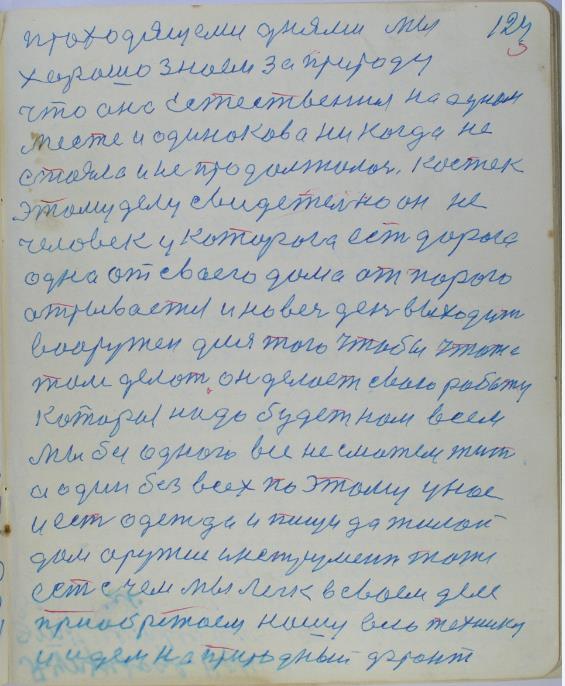 проходящеми днями мы 123
хорошо знаем за природу
что она естествения на одном
месте и одинокова никогда не
стояла и не продолжалась. Костек
этому делу свидетел но он не
человек у которога ест дорога
одна от своего дома от порого
отрываетя и на веч ден выходит
вооружен для того чтобы чтото
там делот он делает свою работу
которая надо будет нам всем
мы без одного все не сможем жит
а один без всех поэтому у нас
и ест одежда и пища да жилой
дом оружие инструмент тоже
ест с чем мы легк в своем деле
приобретаем нашу всю технику
и идем на природный фронт